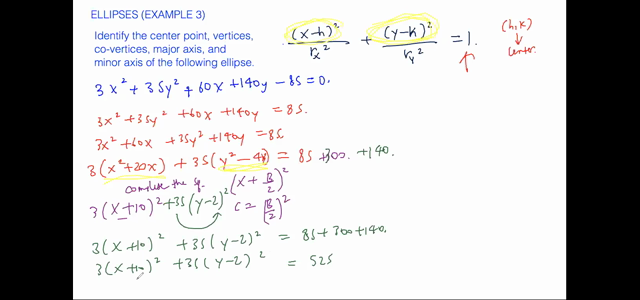 ELLIPSES (EXAMPLE 3)
Identify the center point, vertices,
co-vertices, major axis, and
minor axis of the following ellipse.
(x-h)²/rx² + (y-k)²/ry² = 1.
(h,k)
center
3x² + 35y² + 60x + 140y - 85 = 0.
3x² + 35y² + 60x + 140y = 85.
3x² + 60x + 35y² + 140y = 85.
3(x² + 20x) + 35(y² - 4y) = 85 + 300. + 140.
complete the sq. (x + B/2)²
3(x+10)² + 35(y-2)² C = (B/2)²
3(x+10)² + 35(y-2)² = 85 + 300 + 140.
3(x+10)² + 35(y-2)² = 525